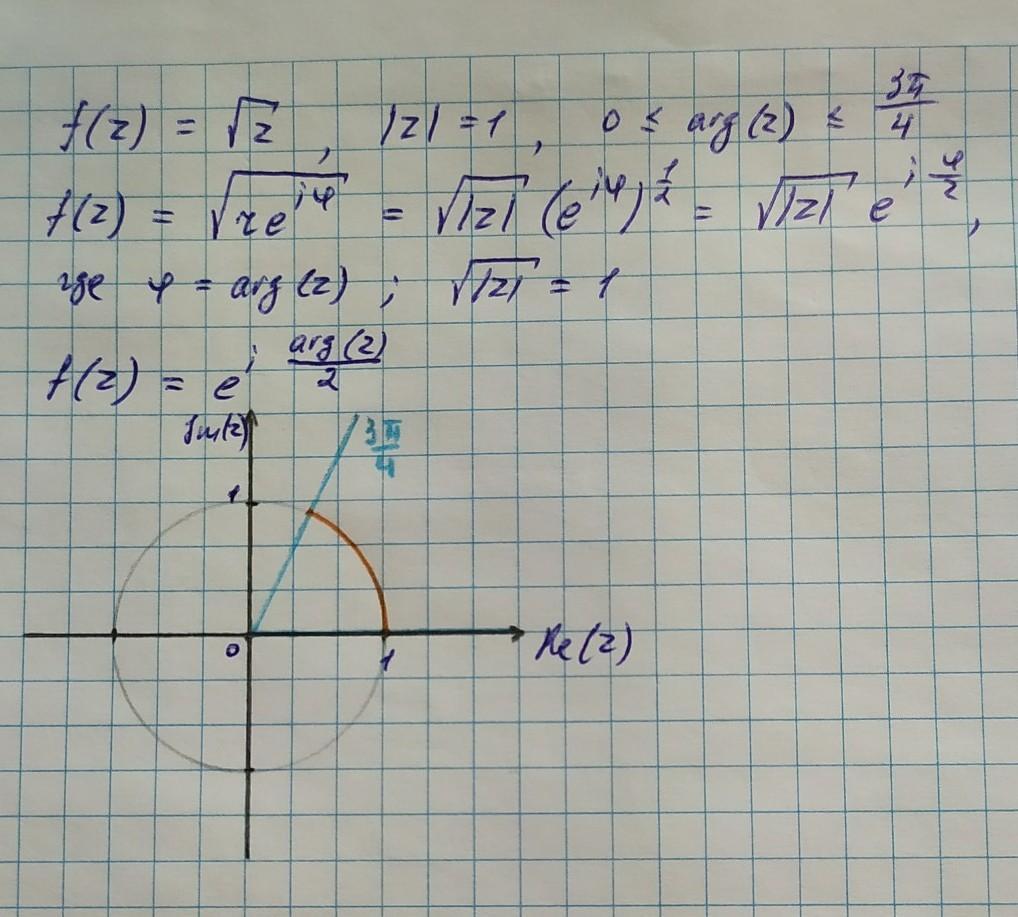 f(z) = √z , |z| = 1 , 0 ≤ arg(z) ≤ 3π/4
f(z) = √(re^{iφ}) = √|z| (e^{iφ})^{1/2} = √|z| e^{i φ/2},
где φ = arg(z) ; √|z| = 1
f(z) = e^{i arg(z)/2}
Im(z)
3π/4
1
0
1
Re(z)